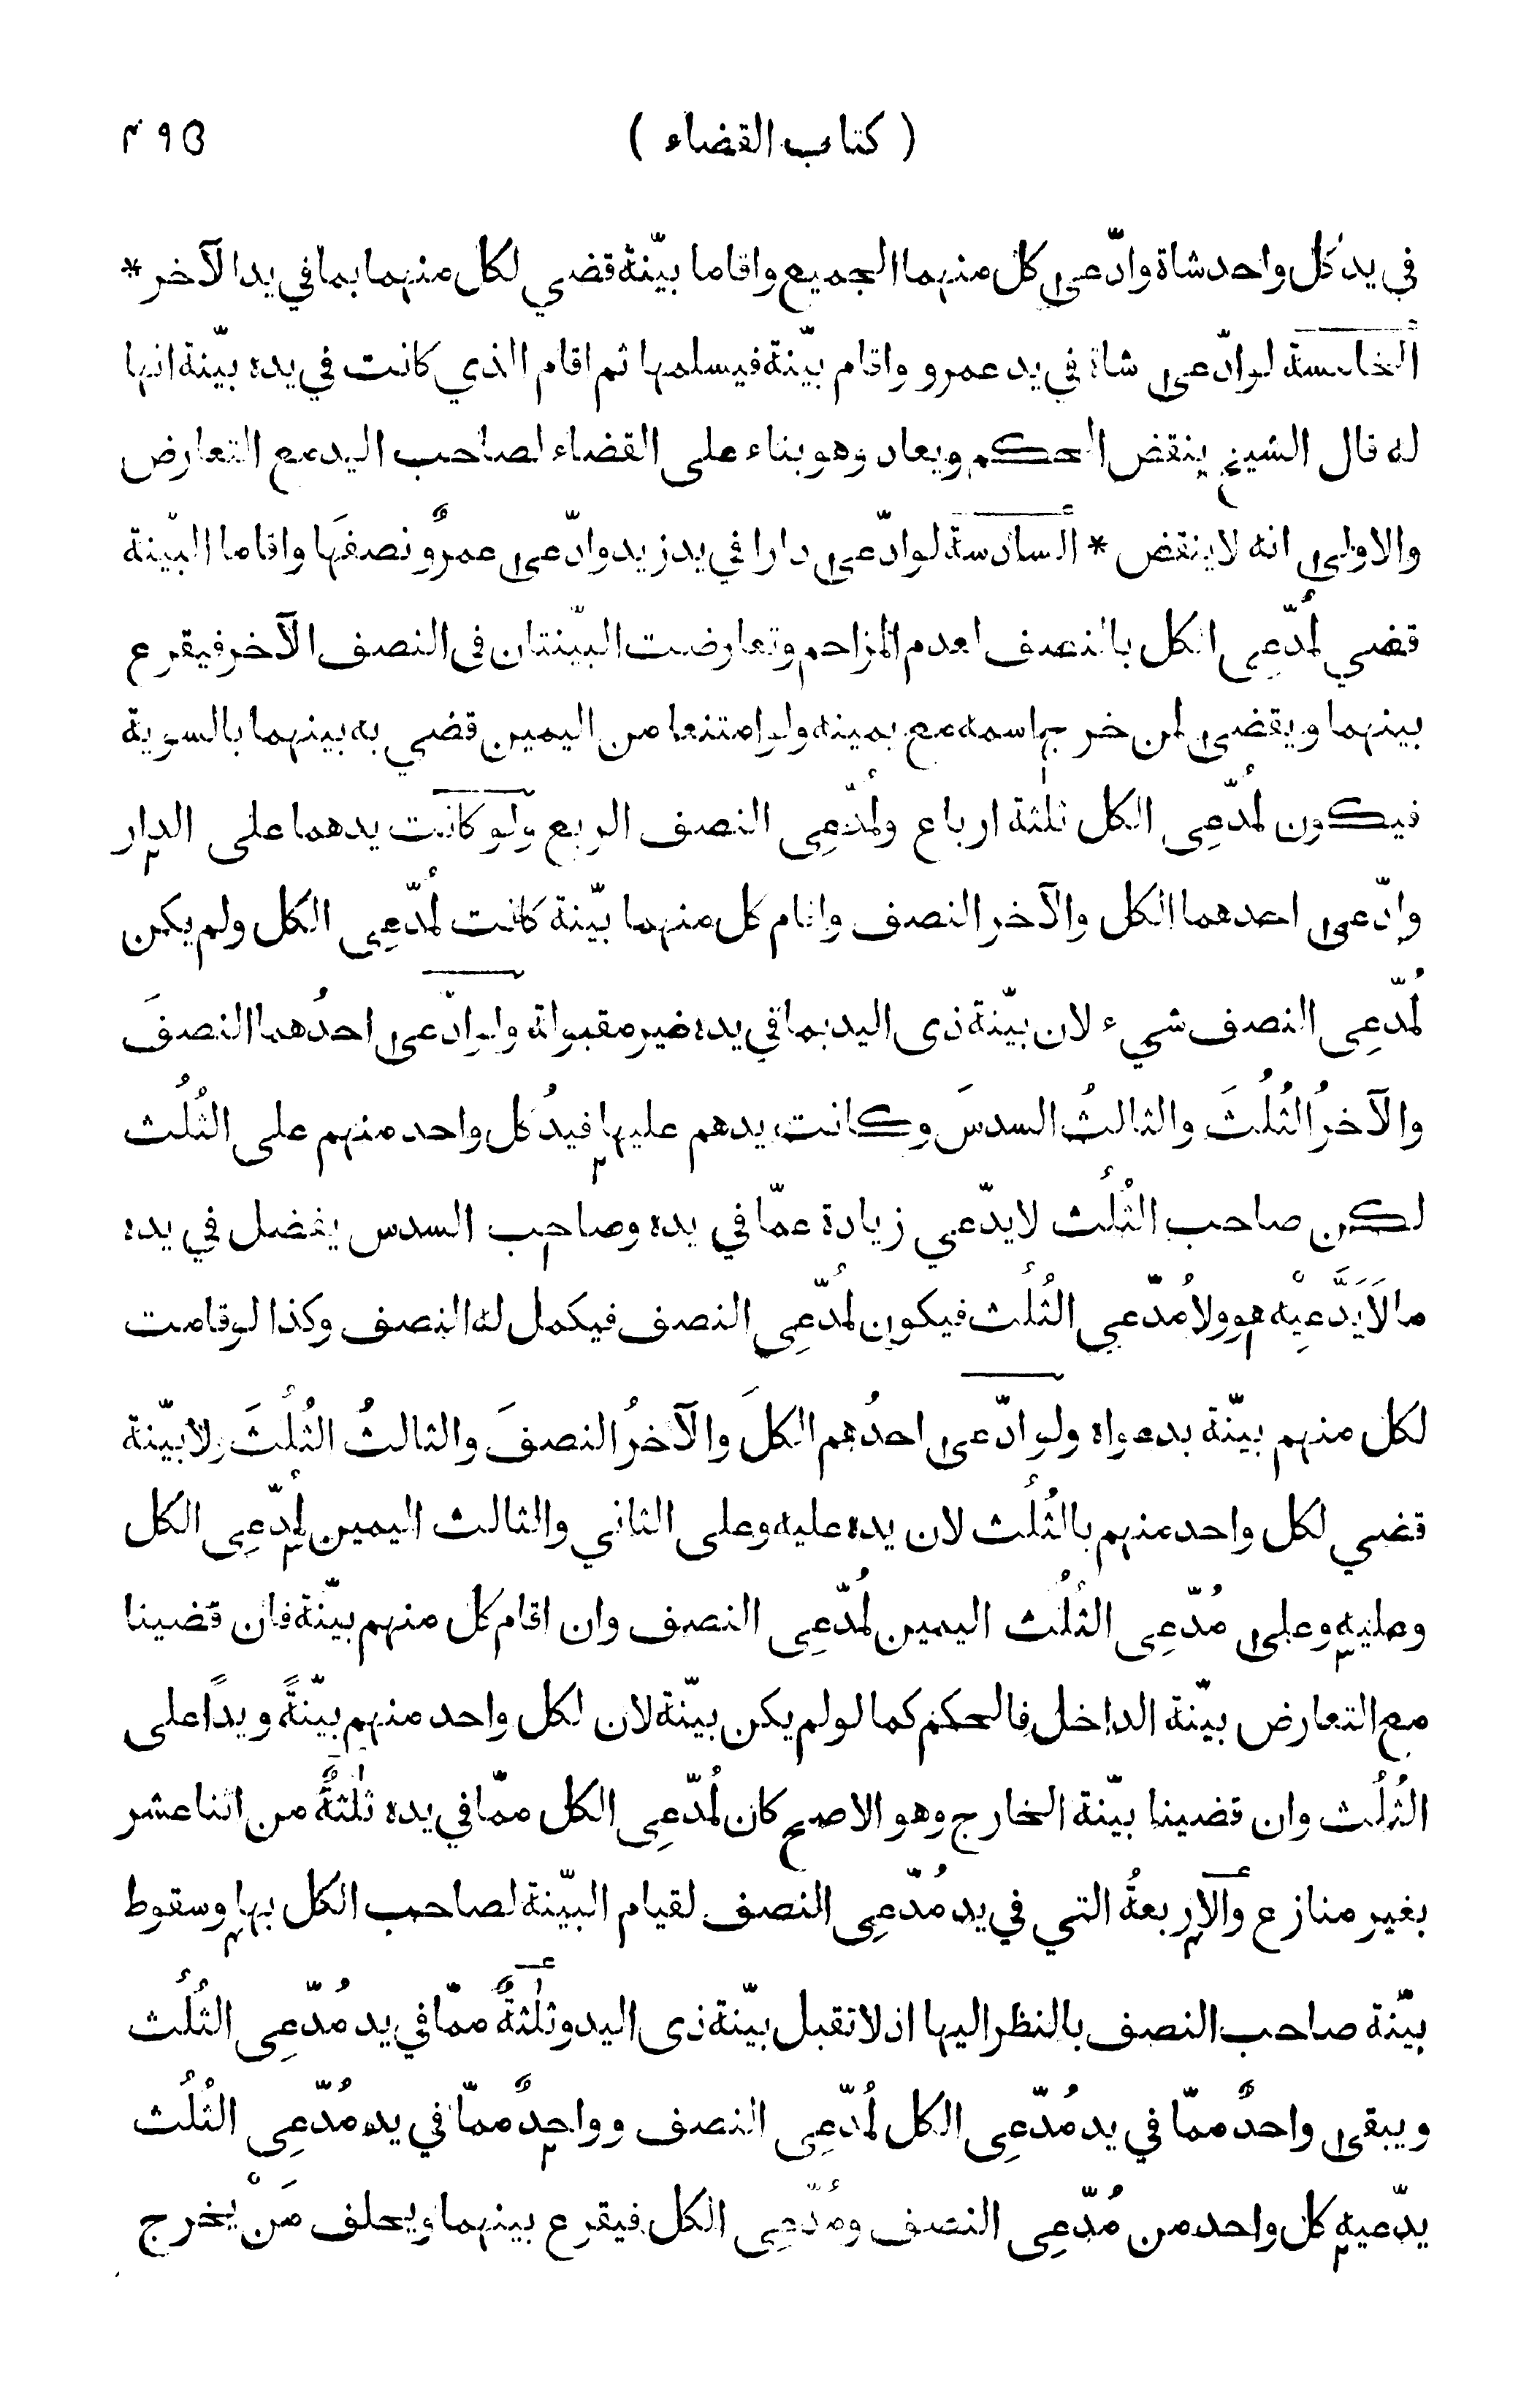 ( كتاب القضاء ) ٤٩٥
في يد كل واحد شاة وادّعى كل منهما الجميع واقاما بيّنة قضي لكل منهما بما في يد الآخر *
الخامسة لو ادّعى شاة في يد عمرو واقام بيّنة فيسلمها ثم اقام الذي كانت في يده بيّنة انها
له قال الشيخ ينقض الحكم ويعاد وهو بناء على القضاء لصاحب اليد مع التعارض
والاولى انه لا ينقض * السادسة لو ادّعى دارا في يد زيد وادّعى عمرٌو نصفَها واقاما البيّنة
قضي لمُدّعِى الكل بالنصف لعدم المزاحم وتعارضت البيّنتان فى النصف الآخر فيقرع
بينهما ويقضى لمن خرج اسمه مع يمينه ولو امتنعا من اليمين قضي به بينهما بالسوية
فيكون لمُدّعِى الكل ثلٰثة ارباع ولمُدّعِى النصف الربع ولو كانت يدهما على الدار
وادّعى احدهما الكل والآخر النصف واقام كل منهما بيّنة كانت لمُدّعِى الكل ولم يكن
لمُدّعِى النصف شيء لان بيّنة ذى اليد بما في يده غير مقبولة ولو ادّعى احدُهما النصفَ
والآخرُ الثُلُثَ والثالثُ السدسَ وكانت يدهم عليها فيدُ كل واحد منهم على الثُلُث
لكن صاحب الثُلُث لا يدّعي زيادة عمّا في يده وصاحب السدس يفضل في يده
ما لَا يَدَّعِيْه هو ولا مُدّعي الثُلُث فيكون لمُدّعِى النصف فيكمل له النصف وكذا لو قامت
لكل منهم بيّنة بدعواه ولو ادّعى احدُهم الكلَ والآخرُ النصفَ والثالثُ الثُلُثَ ولا بيّنة
قضي لكل واحد منهم بالثُلُث لان يده عليه وعلى الثاني والثالث اليمين لمُدّعِى الكل
وعليه وعلى مُدّعِى الثُلُث اليمين لمُدّعِى النصف وان اقام كل منهم بيّنة فان قضينا
مع التعارض بيّنة الداخل فالحكم كما لو لم يكن بيّنة لان لكل واحد منهم بيّنةً ويدًا على
الثُلُث وان قضينا بيّنة الخارج وهو الاصح كان لمُدّعِى الكل ممّا في يده ثلٰثةٌ من اثنا عشر
بغير منازع والاربعةُ التي في يد مُدّعِى النصف لقيام البيّنة لصاحب الكل بها وسقوط
بيّنة صاحب النصف بالنظر اليها اذ لا تقبل بيّنة ذى اليد وثلٰثةٌ ممّا في يد مُدّعِى الثُلُث
ويبقى واحدٌ ممّا في يد مُدّعِى الكل لمُدّعِى النصف وواحدٌ ممّا في يد مُدّعِى الثُلُث
يدّعيه كل واحد من مُدّعِى النصف ومُدّعِى الكل فيقرع بينهما ويحلف مَنْ يخرج